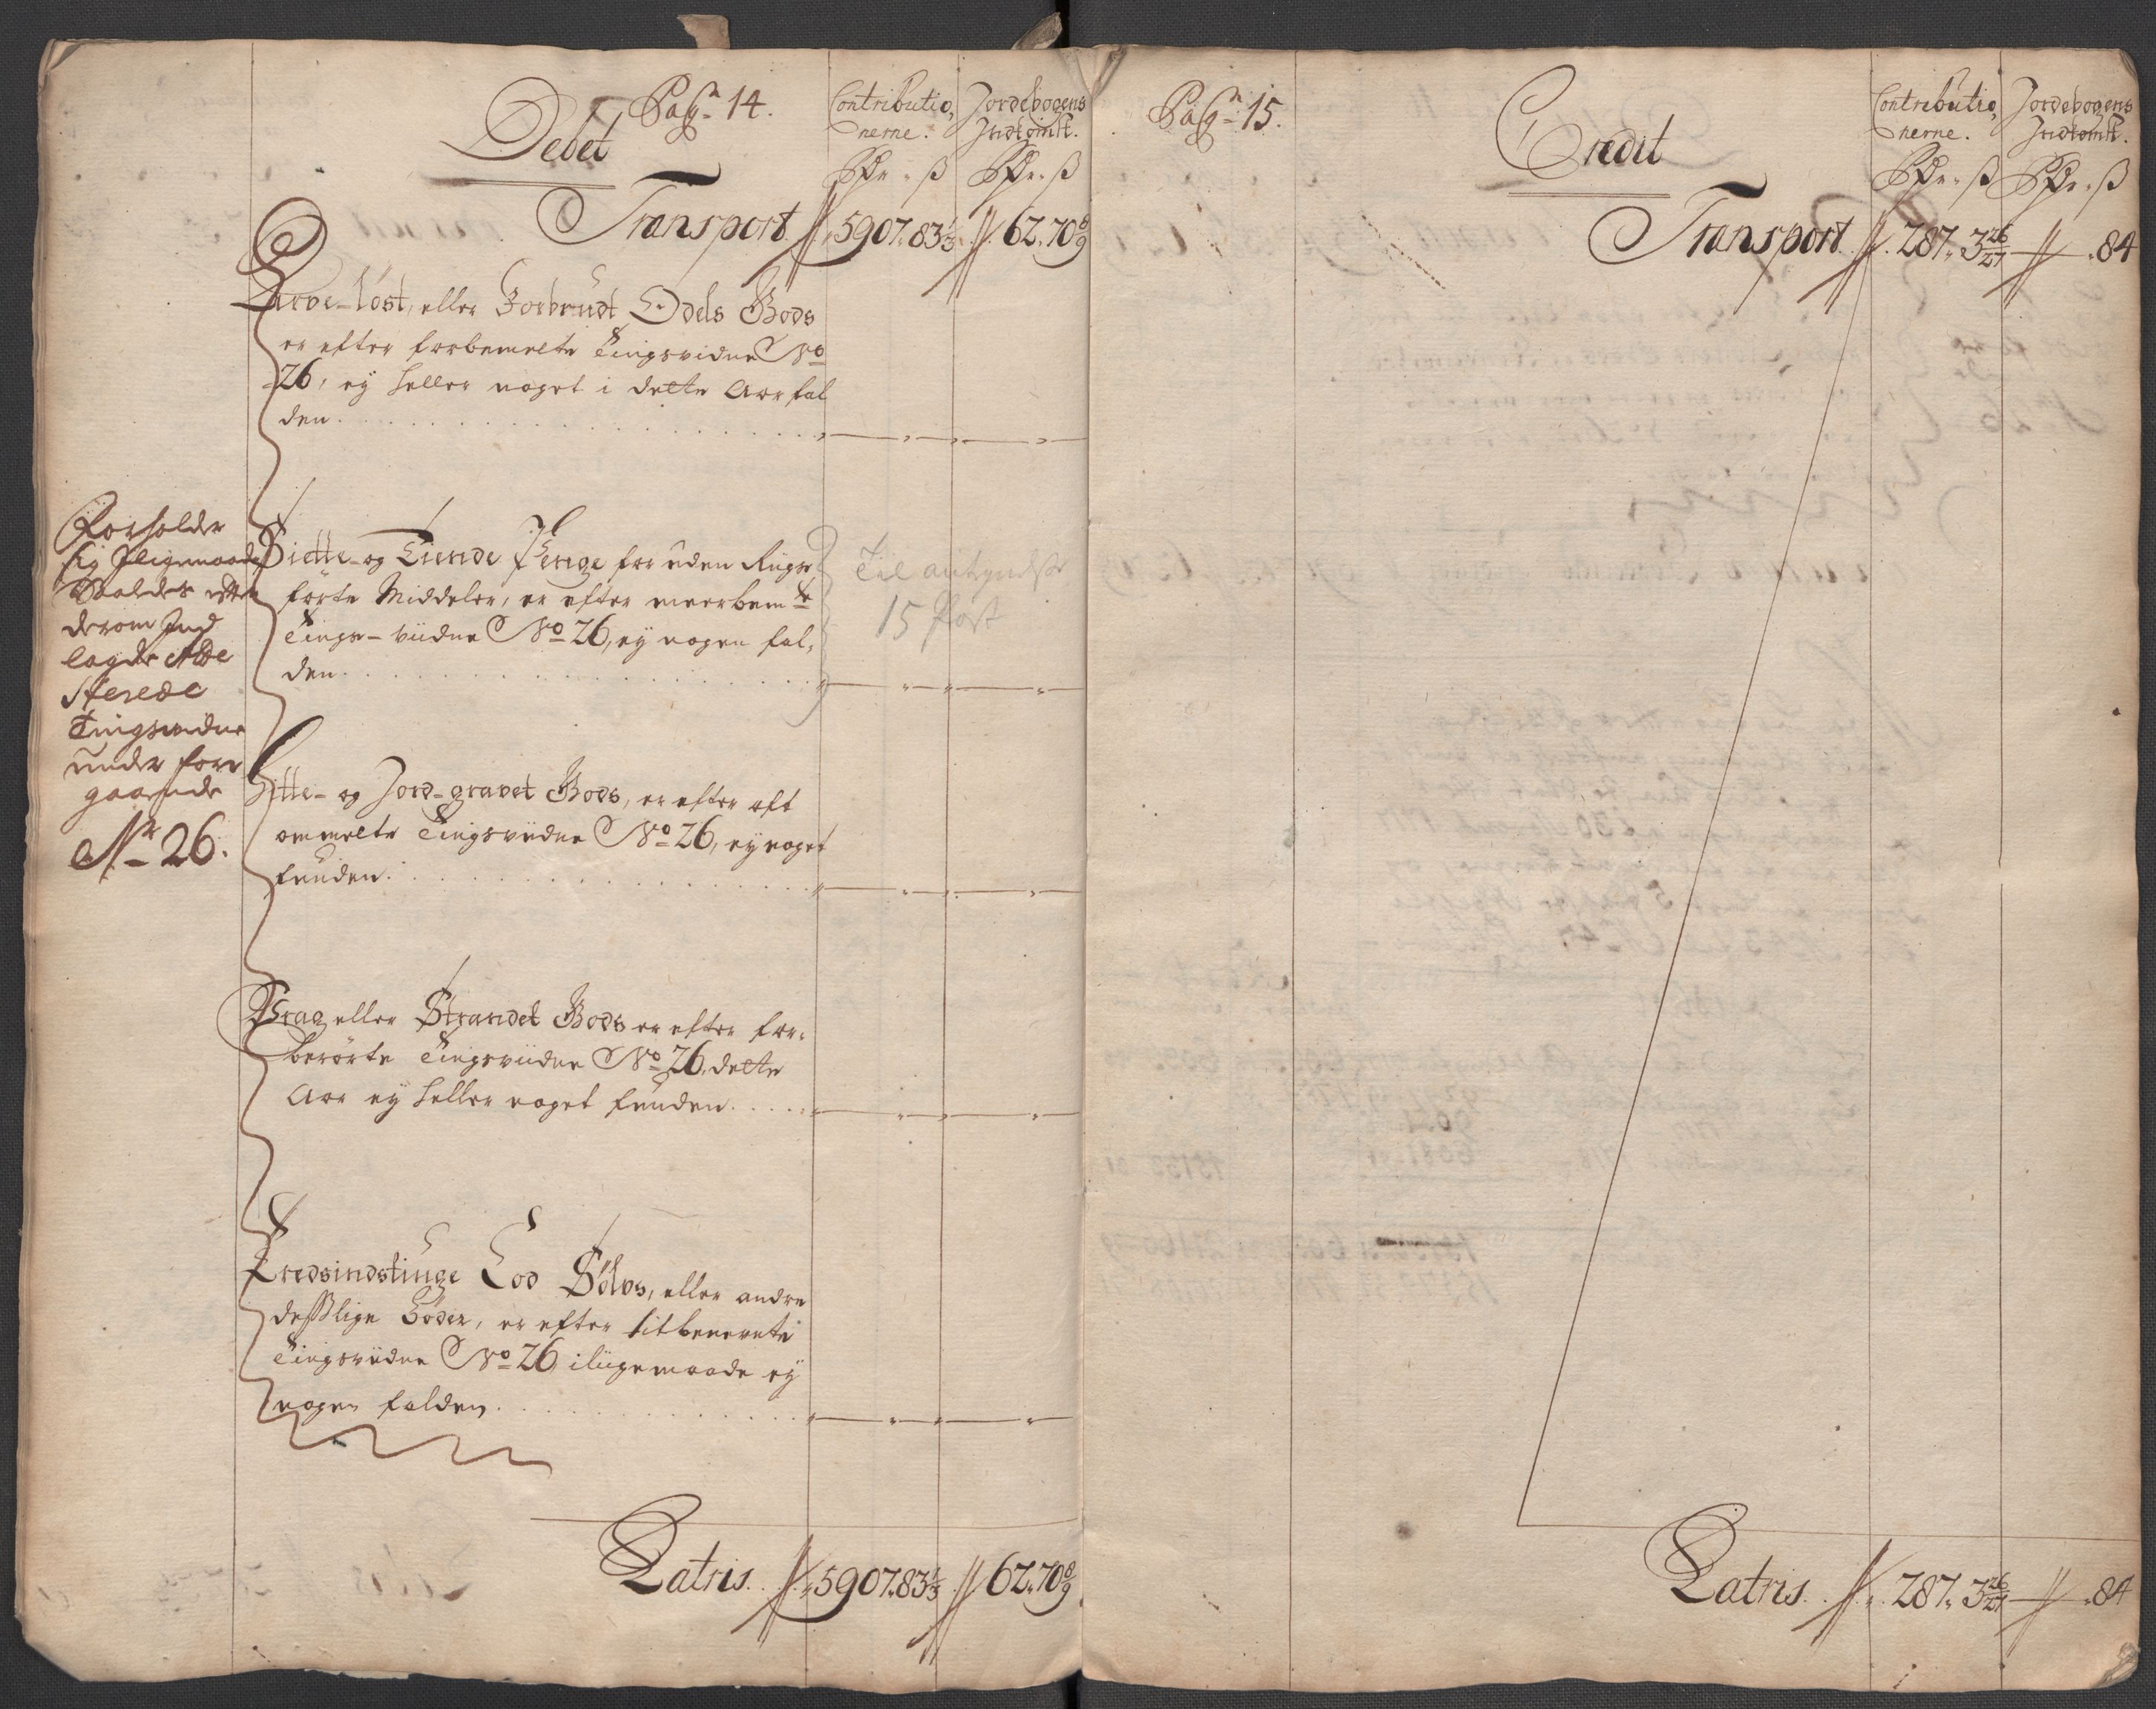 Pag: 14.
Debet
Contributio,
nerne.
Jordebogens
Indkomst.
Rdr. ß
Rdr. ß
Transport 5907. 83 1/3 62. 70 8/9
Arve-løst, eller Forbrudt Odels Gods
er efter forbemelte Tingsvidne No
26, ey heller noget i dette Aar fal
den.
Forholder
sig
efter
derom Ind
lagde
Tingsvidne
under fore
gaaende
No 26.
Siette- og Tiende Penge for uden Riigs
førte Middeler, er efter meerbemte
Tings-viidne No 26, ey nogen fal,
den.
Til
15 Post
Hitte- og Jord-gravet Gods, er efter oft
ommelte Tingsviidne No 26, ey noget
funden.
Vrag eller Strandet Gods er efter for,
berørte Tingsviidne No 26, dette
Aar ey heller noget funden.
Tredsindstiuge Lod Sølvs, eller andre
desslige Bøder, er efter titbenevnte
Tingsviidne No 26 iliigemaade ey
nogen falden.
Latris. 5907. 83 1/3 62. 70 8/9
Pag: 15.
Credit
Contributio,
nerne.
Jordebogens
Indkomst.
Rdr. ß
Rdr. ß
Transport. 287. 3 26/27 84
Latris. 287. 3 26/27 84